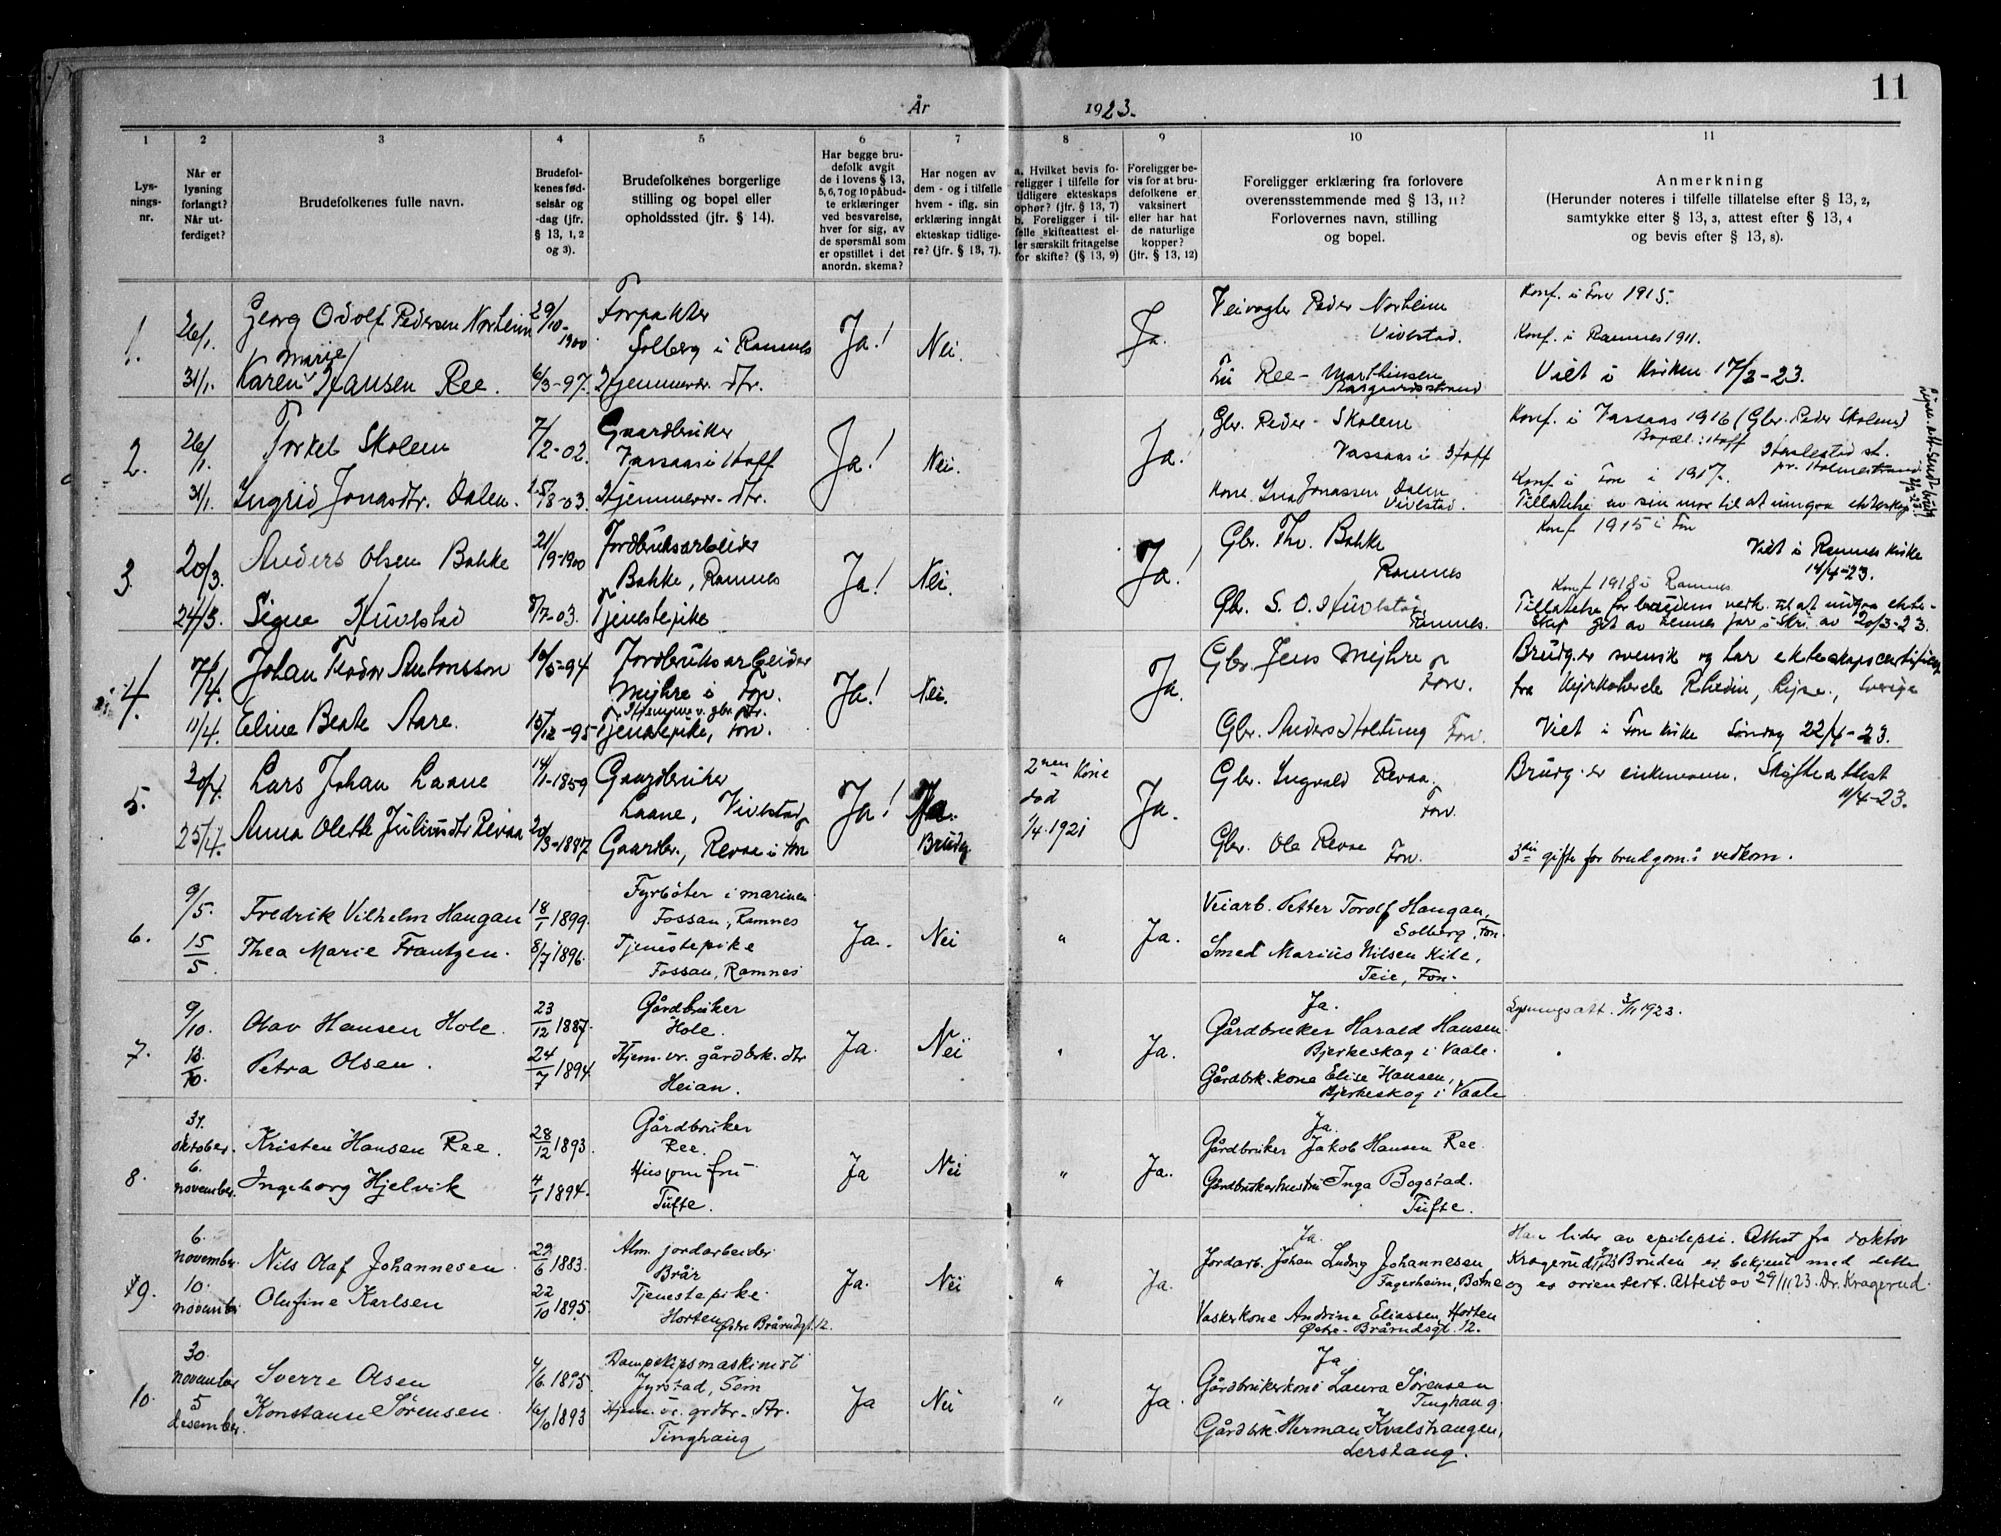 11
År 1923.
1 2 3 4 5 6 7 8 9 10 11
Lys-
nings-
nr.
Når er
lysning
forlangt?
Når ut-
ferdiget?
Brudefolkenes fulle navn.
Brudefol-
kenes fød-
selsår og
-dag (jfr.
§ 13, 1, 2
og 3).
Brudefolkenes borgerlige
stilling og bopel eller
opholdssted (jfr. § 14).
Har begge bru-
defolk avgit
de i lovens § 13,
5, 6, 7 og 10 påbud-
te erklæringer
ved besvarelse,
hver for sig, av
de spørsmål som
er opstillet i det
anordn. skema?
Har nogen av
dem - og i tilfelle
hvem - iflg. sin
erklæring inngåt
ekteskap tidlige-
re? (jfr. § 13, 7).
a. Hvilket bevis fo-
religger i tilfelle for
tidligere ekteskaps
ophør? (jfr. § 13, 7)
b. Foreligger i til-
felle skifteattest el-
ler særskilt fritagelse
for skifte? (§ 13, 9)
Foreligger be-
vis for at bru-
defolkene er
vaksinert
eller har hat
de naturlige
kopper?
(jfr. § 13, 12)
Foreligger erklæring fra forlovere
overensstemmende med § 13, 11?
Forlovernes navn, stilling
og bopel.
Anmerkning
(Herunder noteres i tilfelle tillatelse efter § 13, 2,
samtykke efter § 13, 3, attest efter § 13, 4
og bevis efter § 13, 8).
1.
26/1.
31/1.
Georg Odolf Pedersen Norheim
Marie
Karen Hansen Ree.
29/10-
1900
6/3-97.
Forpakter
Solberg i Ramnes
Hjemmevær. dtr.
Ja!
Nei.
Ja.
Veivogter Peder Norheim
Vivestad.
Fru Ree - Marthinsen
Aasgaardsstrand
Konf. i Fon 1915.
Konf. i Ramnes 1911.
Viet i Kirken 17/3-23.
2.
26/1.
31/1.
Torkel Skolem
Ingrid Jonasdtr. Dalen.
7/2-02.
Gaardbruker
Vassaas i Hoff
Hjemmevær. dtr.
Ja!
Nei.
Ja!
Gbr. Peder Skolem
Vassaas i Hoff
Kone Ina Jonassen Dalen
Vivestad.
Konf. i Vassaas 1916 (Gbr. Peder Skolem)
Bopæl: Hoff
pr. Holmestrand.
Konf. i Fon i 1917.
Tillatelse av sin mor til at inngaa ekteskap
3.
20/3.
24/3.
Anders Olsen Bakke
Signe
21/9-1900
8/7-03.
Jordbruksarbeider
Bakke, Ramnes
Tjenestepike
Ja!
Nei.
Ja!
Gbr. Th. Bakke
Ramnes
Gbr. S. O.
Ramnes.
Konf. 1915 i Fon
Viet i Ramnes kirke
14/4-23.
Konf 1918 i Ramnes
Tillatelse for brudens vedk. til at indgaa ekte-
skap git av hennes far i Skr. av 20/3-23.
4.
7/4.
11/4.
Johan Teodor Antonsson
Eline Beate Aare.
10/5-94
15/12-95
Jordbruksarbeider
Mejhre i Fon.
Hjemmev. gbr. dtr.
Tjenestepike, Fon.
Ja!
Nei.
Ja.
Gbr. Jens Mejhre
Fon.
Gbr. Anders Holtung Fon.
Brudg. er svensk og har ekteskapscertifikat
fra Kyrkoherde Rhedin, Sverige
Viet i Fon kirke Søndag 22/4-23.
5.
20/4.
25/4.
Lars Johan Laane
Anna Olette Juliusdtr Revaa
14/1-1859
20/3-1887.
Gaardbruker
Laane, Vivestad
Gaardbr., Revaa i Fon
Ja!
Ja.
Brudg
2nen Kone
død
1/4.1921
Ja.
Gbr. Ingvald Revaa.
Fon.
Gbr. Ole Revaa Fon.
Brudg. er enkemann. Skifteattest
11/4-23.
3die gifte for brudgom.s vedkom.
6.
9/5.
15/5.
Fredrik Vilhelm Haugan
Thea Marie Frantzen.
18/1 1899.
8/7 1896.
Fyrbøter i marinen
Fossan, Ramnes
Tjenestepike
Fossan, Ramnes
Ja.
Nei
"
Ja.
Veiarb. Petter Torolf Haugan,
Solberg, Fon.
Smed Marius Nilsen Kile,
Teie, Fon.
7.
9/10.
Olav Hansen Hole.
Petra Olsen.
23/12 1887.
24/7 1894.
Gårdbruker
Hole.
Hjem. vr. gårdbrk. dtr
Heian.
Ja.
Nei
"
Ja.
Ja.
Gårdbruker Harald Hansen
Bjerkeskog i Vaale.
Gårdbrk.kone Elise Hansen,
Bjerkeskog i Vaale
Lysningsatt. 3/11 1923.
8.
31.
oktober.
6.
november.
Kristen Hansen Ree.
Ingeborg Hjelvik
28/12 1893.
4/1 1894.
Gårdbruker
Ree.
Husjomfru
Tufte.
Ja
Nei
"
Ja.
Ja.
Gårdbruker Jakob Hansen Ree.
Gårdbrukerhustru Inga Bogstad.
Tufte.
9.
6.
november.
10.
november
Nils Olaf Johannesen.
Olufine Karlsen
29/6 1883.
22/10 1895.
Alm. jordarbeider
Brår
Tjenestepike.
Horten, Østre Brårudgt. 12.
Ja.
Nei
"
Ja.
Ja.
Jordarb. Johan Ludvig Johannesen
Fagerheim, Botne
Vaskerkone Andrine Eliassen, Horten
Østre Brårudsgt. 12.
Han lider av epilepsi. Attest fra doktor
Kragerud, at Bruden er bekjent med dette
og er orientert. Attest av 29/11 23. Dr. Kragerud.
10.
30.
november
5
desember.
Sverre Olsen
Konstanse Sørensen.
4/6. 1895.
Dampskipsmaskinist
Jyrstad, Sem
Hjem. vr. grdbr. dtr.
Tinghaug
Ja
Nei
"
Ja.
Ja
Gårdbrukerkone Laura Sørensen
Tinghaug.
Gårdbrk. Herman Kvalshaugen,
Lershaug.